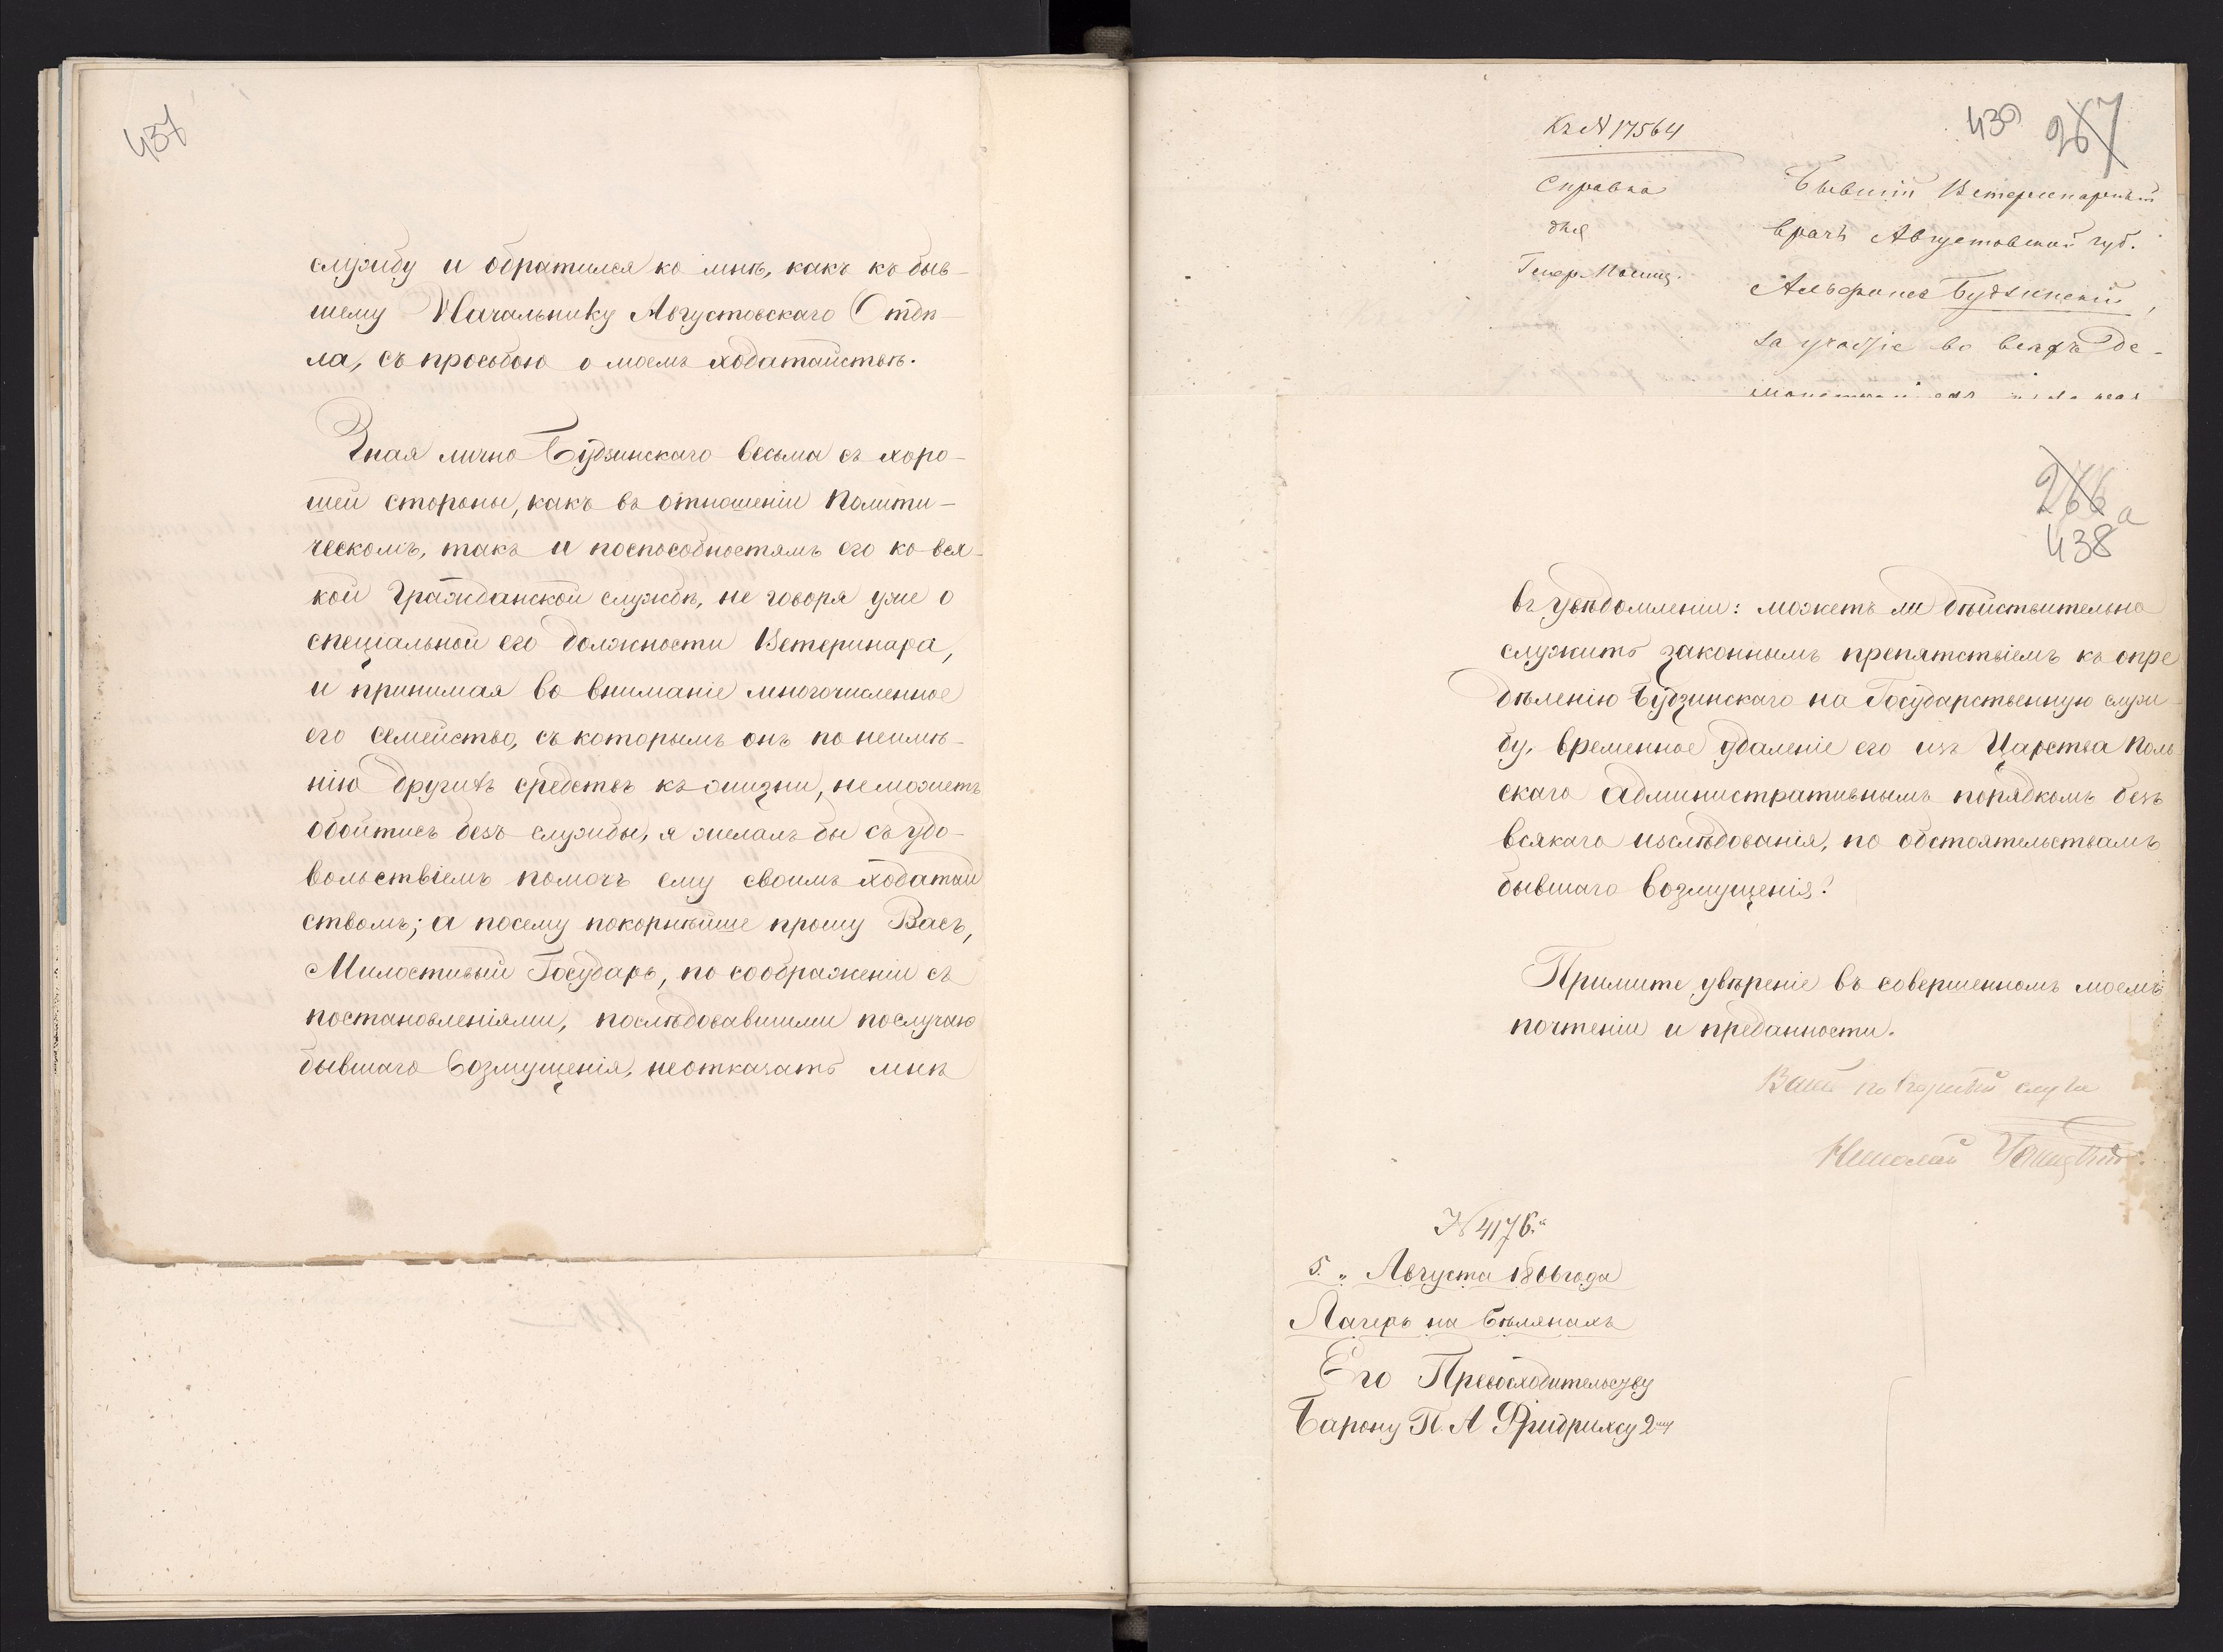 437
службу и обратился ко мнѣ, какъ къ быв-
шему Начальнику Августовскаго Отдѣ-
ла, съ просьбою о моемъ ходатайствѣ.
Зная лично Будзинскаго весьма съ хоро-
шей стороны, какъ въ отношеніи полити-
ческомъ, такъ и поспособностямъ его ко вся-
кой Гражданской службѣ, не говоря уже о
спеціальной его должности Ветеринара,
и принимая во вниманіе многочисленное
его семейство, съ которымъ онъ по неимѣ-
нію другихъ средствъ къ жизни, неможетъ
обойтись безъ службы, я желалъ бы съ удо-
вольствіемъ помочь ему своимъ ходатай
ствомъ; а посему покорнѣйше прошу Васъ,
Милостивый Государь, по соображеніи съ
постановленіями, послѣдовавшими послучаю
бывшаго возмущенія, неотказать мнѣ
439 267
Къ № 17564
Справка
для
Генер.
Бывшій Ветеринарный
врачъ Августовской губ.
Альфонсъ Будзинскій,
за участіе во всѣхъ де-
266 а
438
въ увѣдомленіи: можетъ ли дѣйствительно
служить законнымъ препятствіемъ къ опре
дѣленію Будзинскаго на Государственную служ-
бу, временное удаленіе его изъ Царства Поль
скаго административнымъ порядкомъ безъ
всякаго изслѣдованія, по обстоятельствамъ
бывшаго возмущенія?
Примите увѣреніе въ совершенномъ моемъ
почтеніи и преданности.
Вашъ покорный слуга
Николай
№ 4176.
5. „ Августа 1866 года
Лагерь на Бѣлянахъ
Его Превосходительству
Барону П. А Фридрихсу 2му